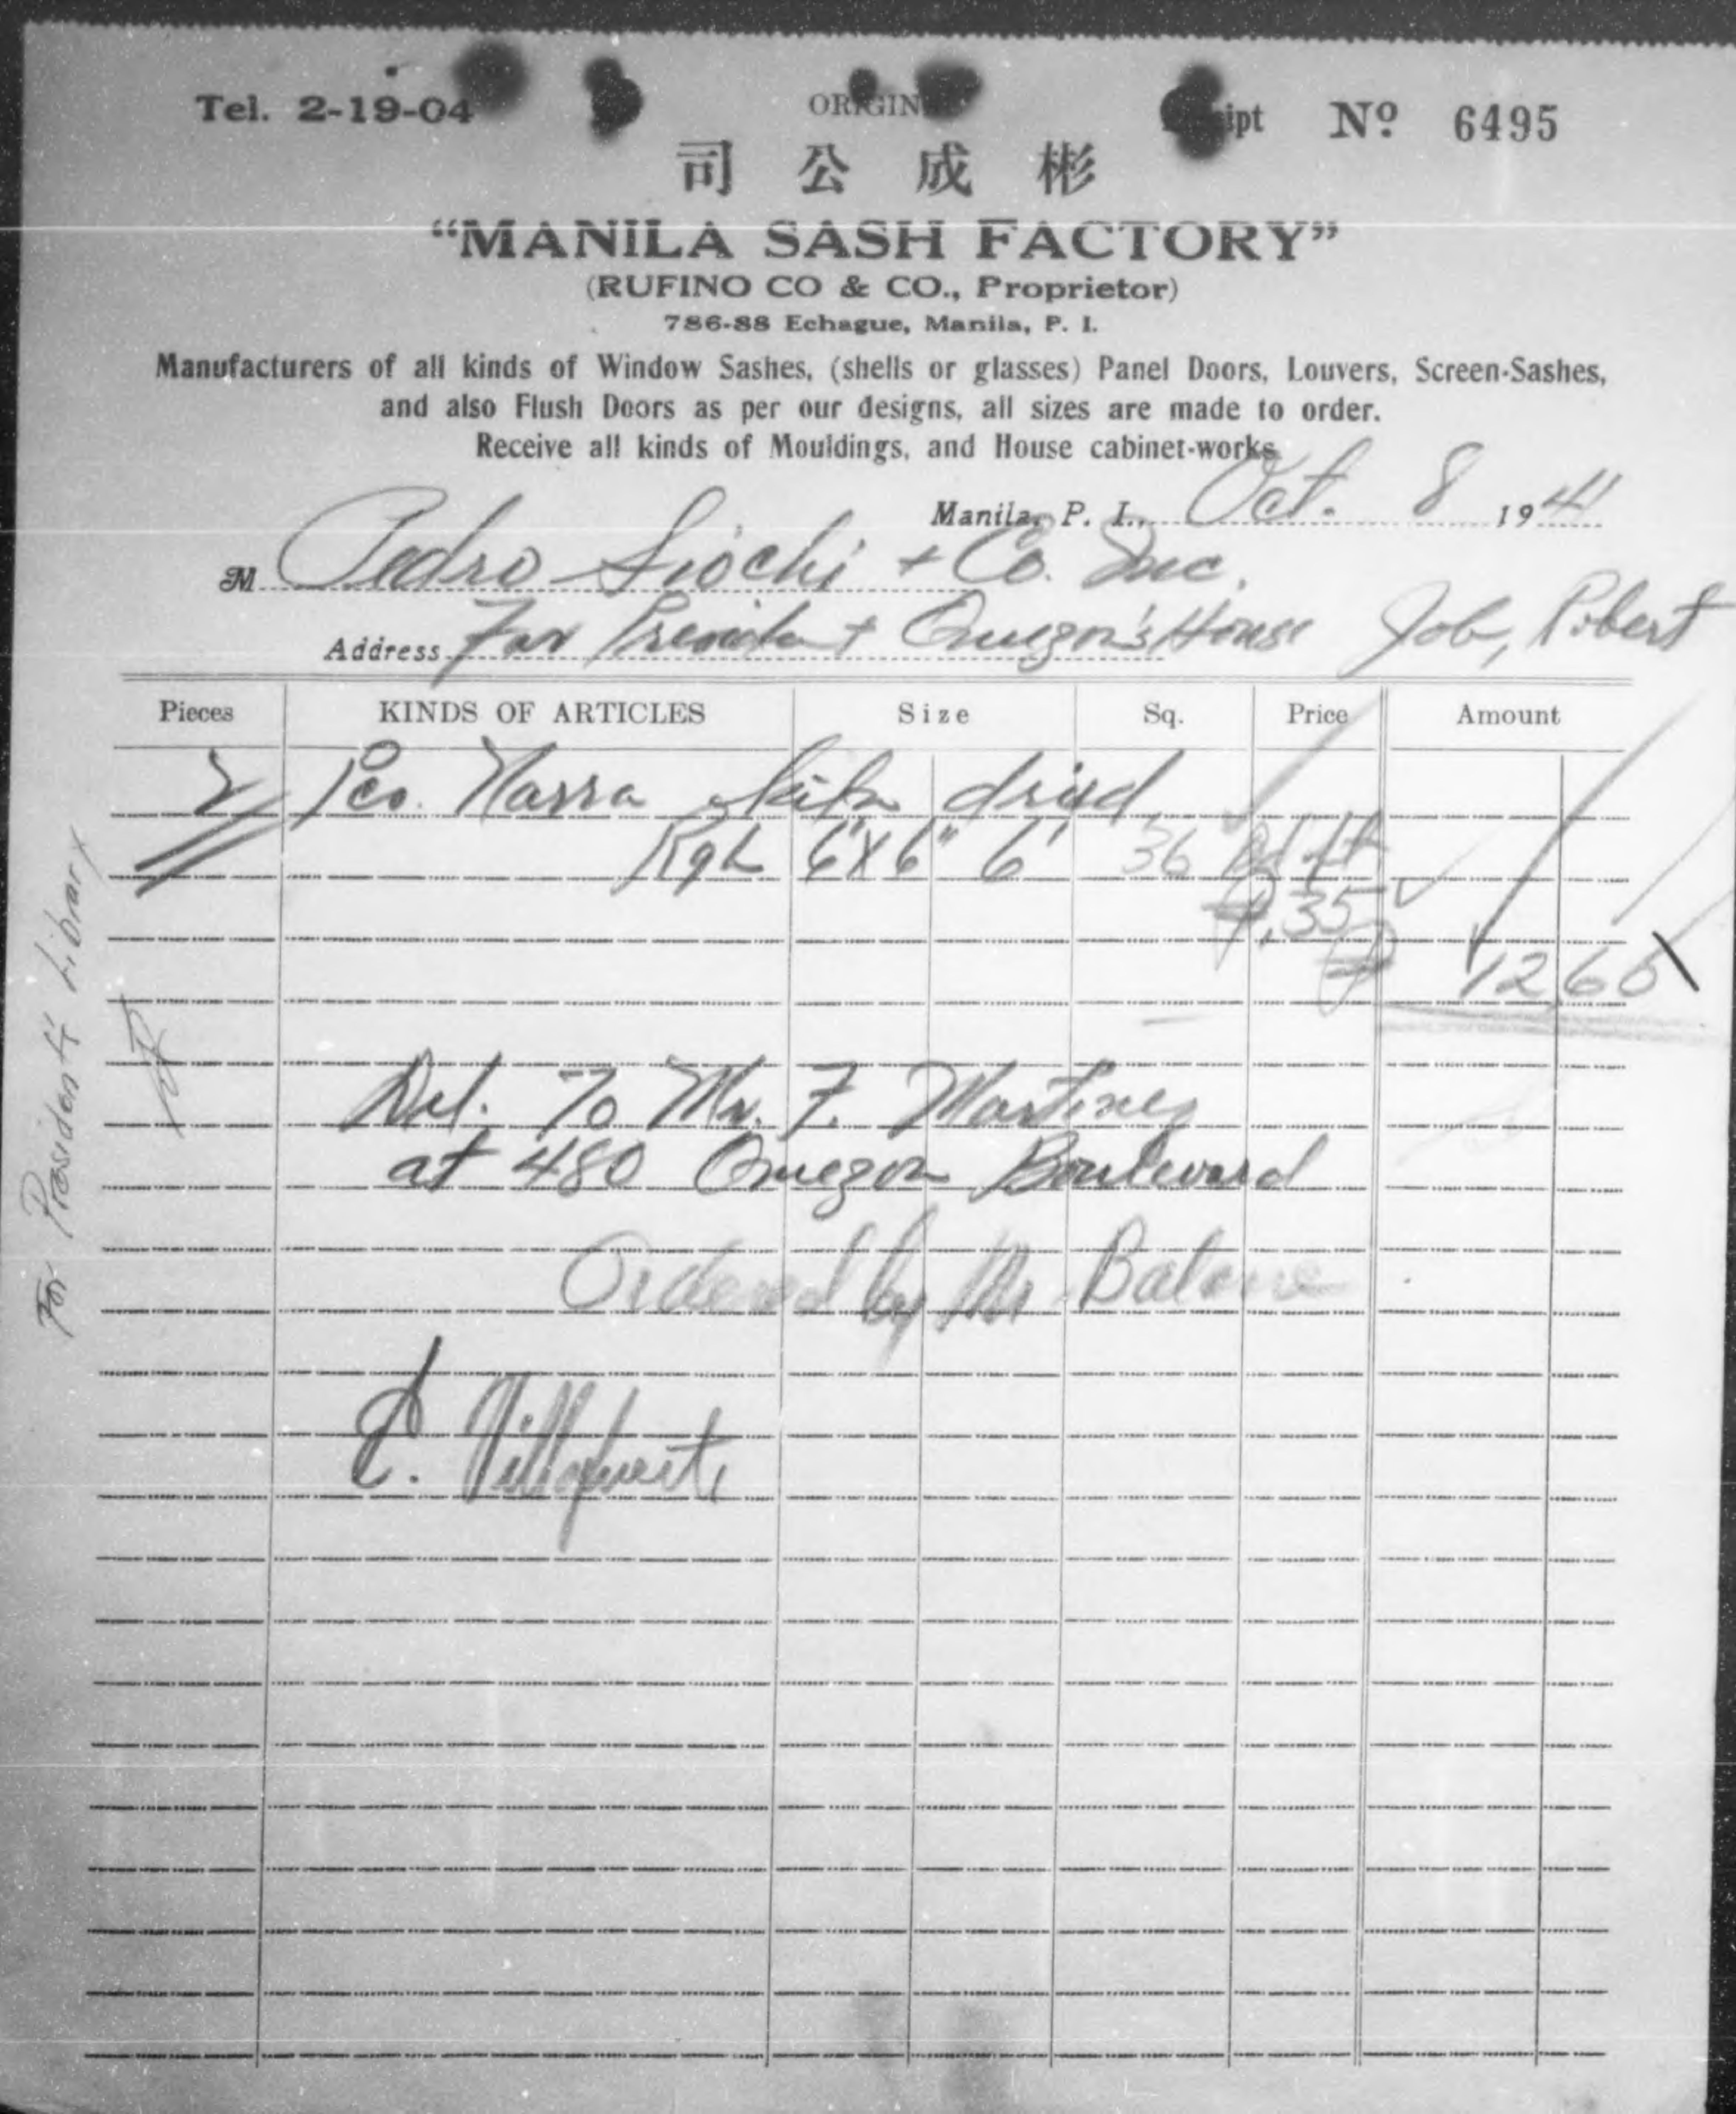 Tel. 2-19-04
ipt Nº 6495
司 公 成 彬
"MANILA SASH FACTORY"
(RUFINO CO & CO., Proprietor)
786-88 Echague, Manila, P. I.
Manufacturers of all kinds of Window Sashes, (shells or glasses) Panel Doors, Louvers, Screen-Sashes,
and also Flush Doors as per our designs, all sizes are made to order.
Receive all kinds of Mouldings, and House cabinet-works
Manila, P. I., Oct. 8 1941
M Pedro Siochi + Co. Inc.
Address For President Quezon's House Job, Robert
Pieces KINDS OF ARTICLES Size Sq. Price Amount
2 Pcs. Narra kiln dried
Rgh 6"X6" 6' 36 bd ft
₱.35
₱ 12 60
Del. To Mr. F. Martinez
at 480 Quezon Boulevard
Ordered by Mr
For President's Library